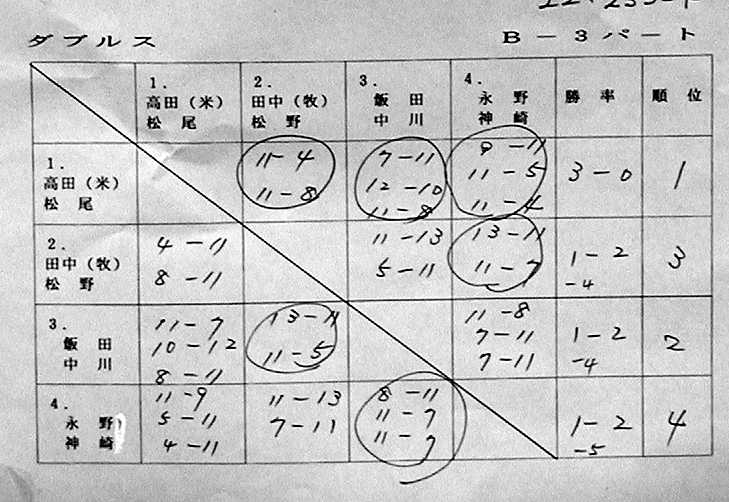 ダブルス B－3パート
1. 2. 3. 4. 勝率 順位
高田（米） 田中（牧） 飯田 永野
松尾 松野 中川 神崎
1. 11-4 7-11 9-11 3-0 1
高田（米） 11-8 12-10 11-5
松尾 11-8 11-4
2. 4-11 11-13 13-11 1-2 3
田中（牧） 8-11 5-11 11-7 -4
松野
3. 11-7 13-11 11-8 1-2 2
飯田 10-12 11-5 7-11 -4
中川 8-11 7-11
4. 11-9 11-13 8-11 1-2 4
永野 5-11 7-11 11-7 -5
神崎 4-11 11-7